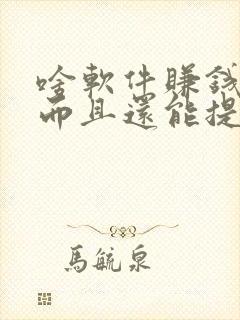 啥軟件賺錢
而且還能提
馬毓泉